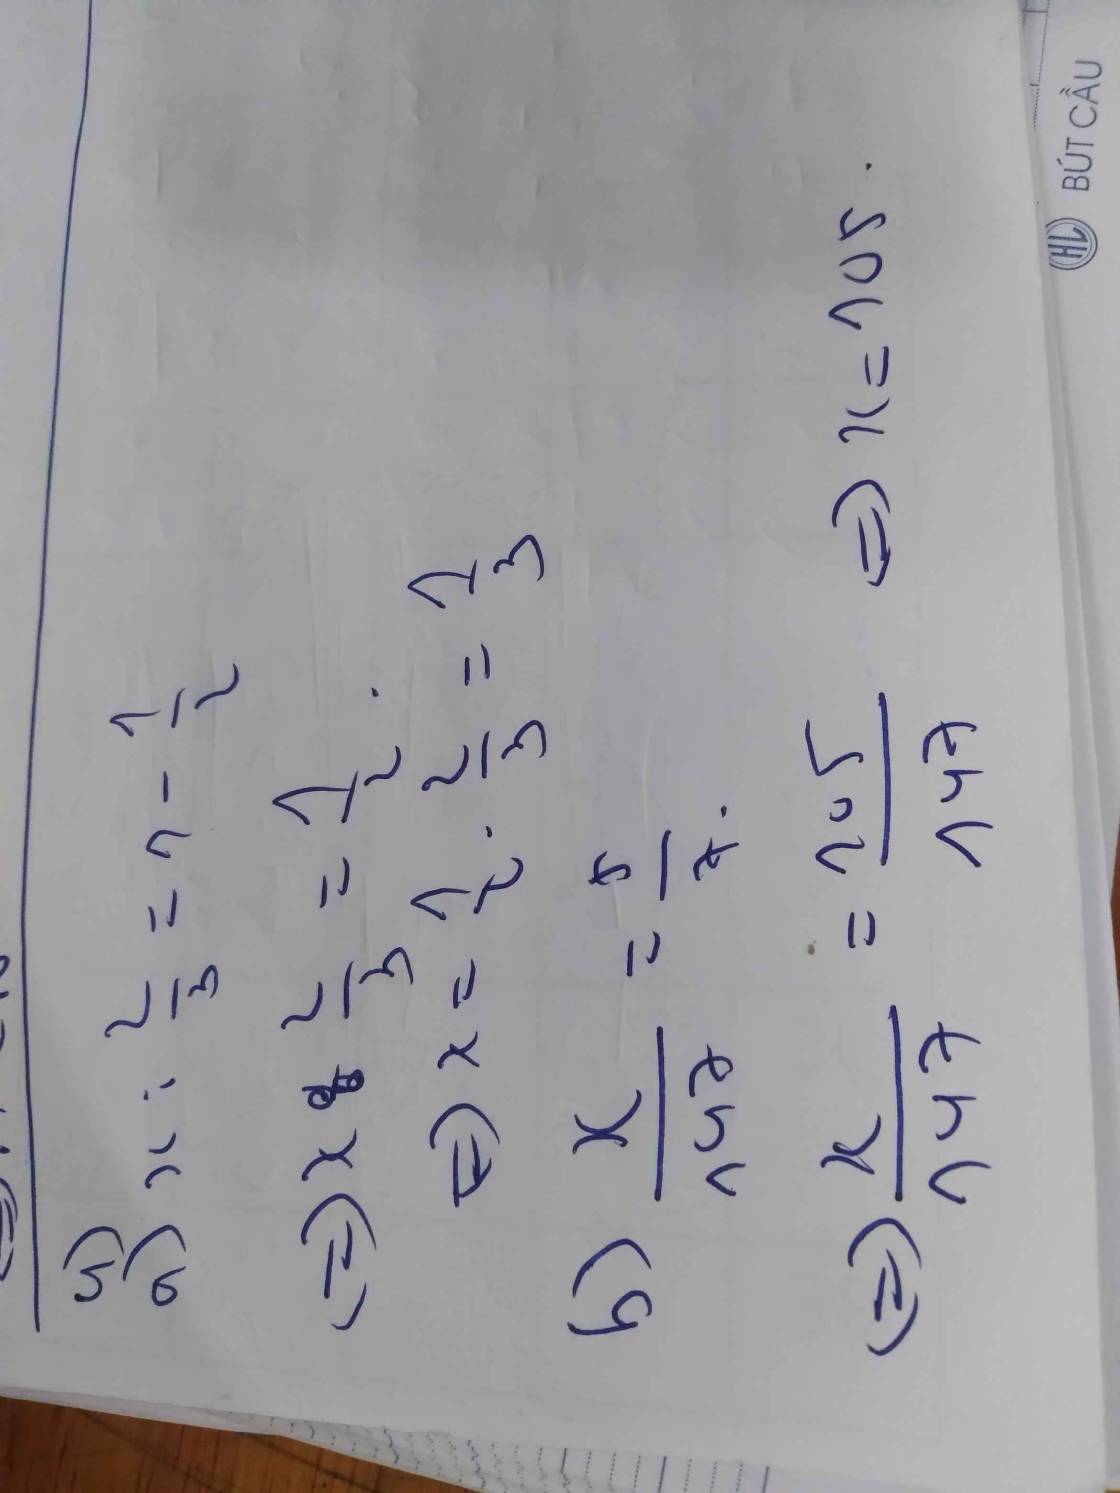 5)
a) x : 2/3 = 1 - 1/2
(=) x : 2/3 = 1/2.
(=) x = 1/2 . 2/3 = 1/3
b) x/147 = 5/7.
(=) x/147 = 105/147 => x = 105.
HL BÚT CẦU